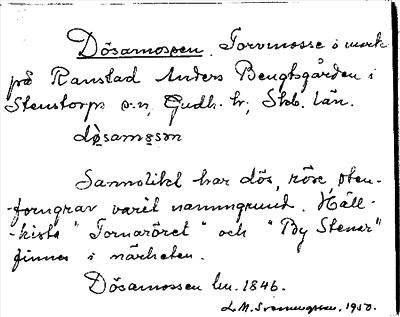 Dösamossen. Torvmosse i mark
på Ranstad Anders Bengtsgården i
Stenstorps s:n, Gudh. hr, Skb. län.
dø̱samo̱sən
Sannolikt har dös, röse, sten-
forngrav varit namngrund. Häll-
-kista "Fornaröret" och "By Stenar"
finnes i närheten.
Dösamossen lm. 1846.
L.M. Svenungsson, 1950.